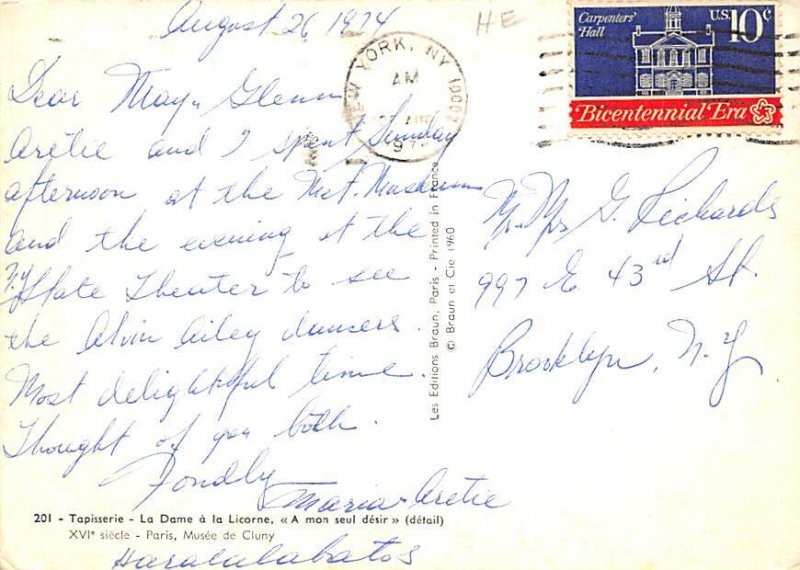 August 26, 1974
HE
Dear May & Glenn
Aretie and I spent Sunday
afternoon at the Met. Museum
and the evening at the
N.Y State Theater to see
the Alvin Ailey dancers.
Most delightful time.
Thought of you both.
Fondly
Maria - Aretie
Haralalabatos
201 - Tapisserie - La Dame à la Licorne, « A mon seul désir » (détail)
XVIe siècle - Paris, Musée de Cluny
Les Editions Braun, Paris - Printed in France
© Braun et Cie 1960
NEW YORK, NY 1000
AM
Carpenters'
Hall
U.S. 10c
Bicentennial Era
Mr. Mrs G. Richards
997 E 43rd St.
Brooklyn, N.Y